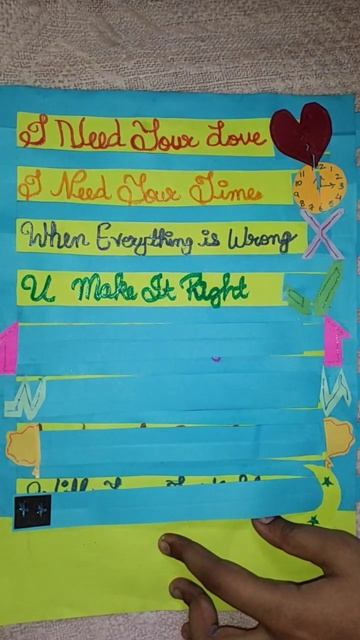 I Need Your Love
I Need Your Time
When Everything is Wrong
U Make It Right